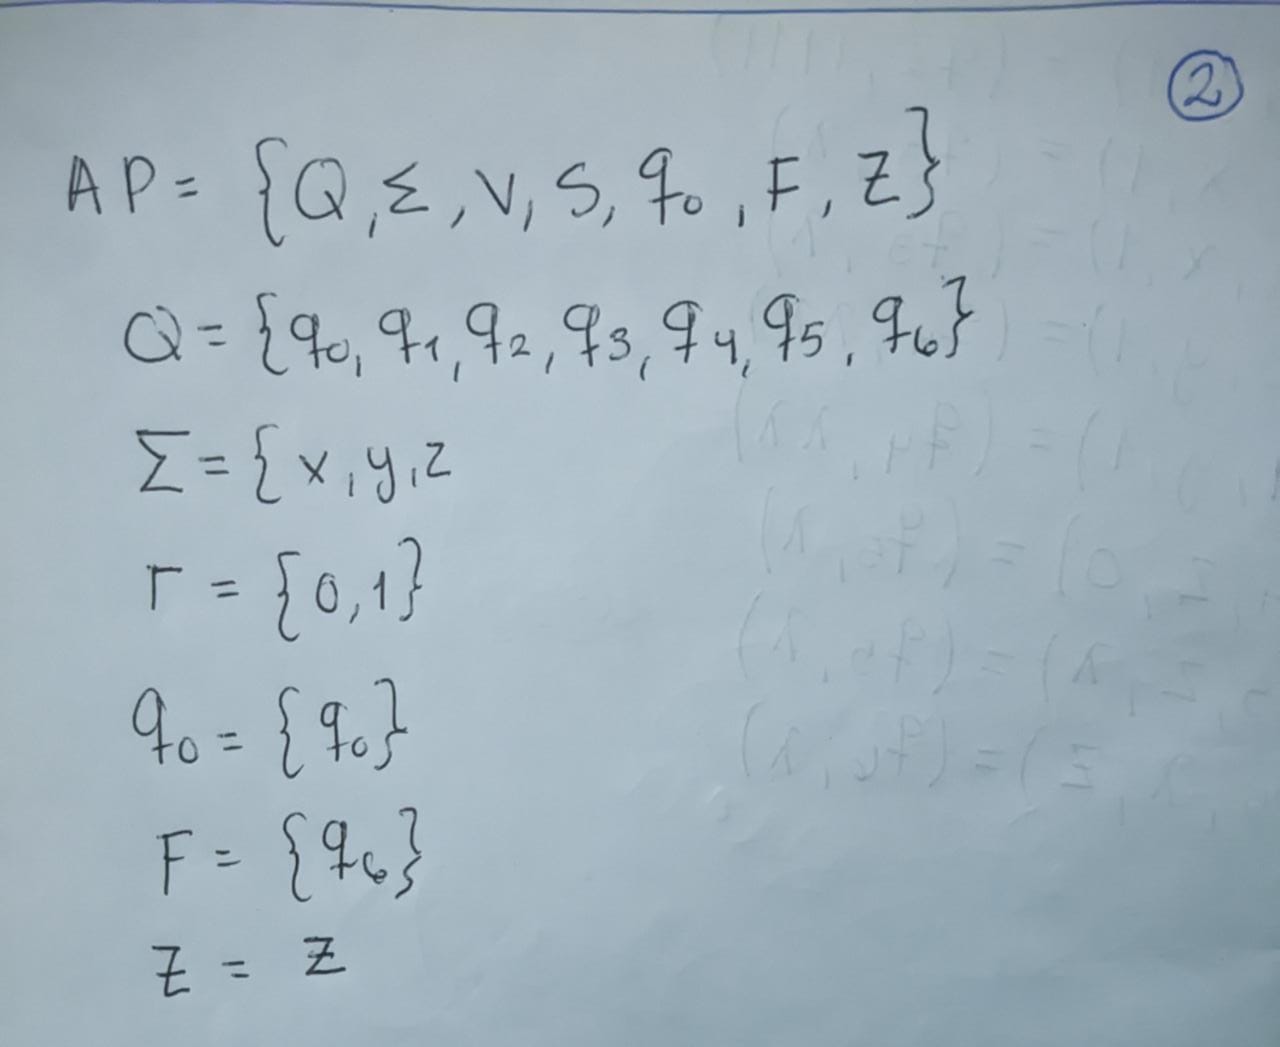 ②
AP = {Q, Σ, V, S, q₀, F, Z}
Q = {q₀, q₁, q₂, q₃, q₄, q₅, q₆}
Σ = {x, y, z
Γ = {0, 1}
q₀ = {q₀}
F = {q₆}
Z = Z